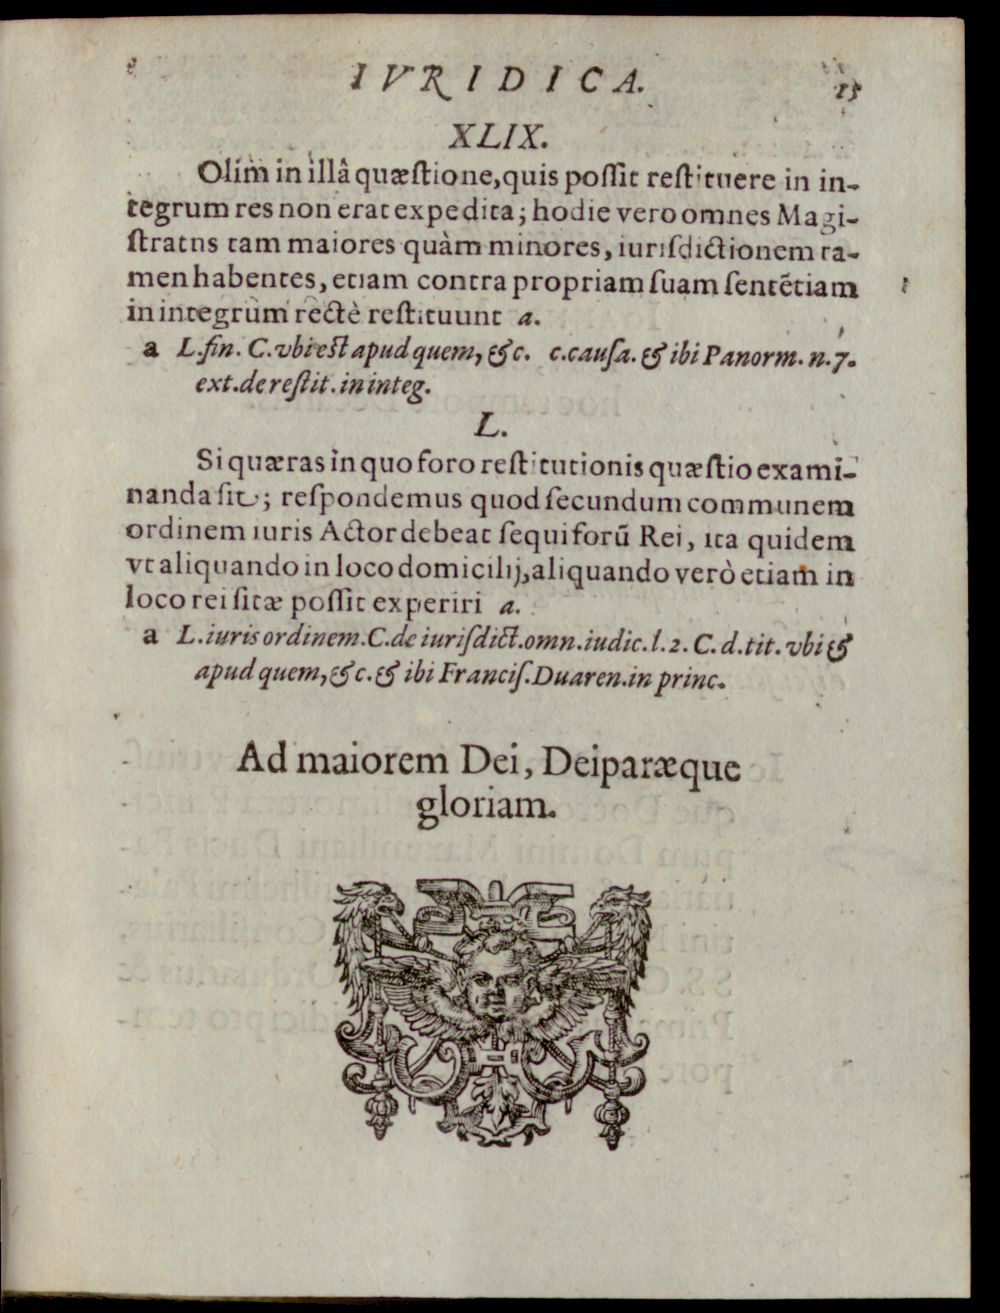 IVRIDICA. 15
XLIX.
Olim in illâ quæstione, quis possit restituere in in-
tegrum res non erat expedita; hodie vero omnes Magi-
stratus tam maiores quàm minores, iurisdictionem ta-
men habentes, etiam contra propriam suam sentẽtiam
in integrum rectè restituunt a.
a L. fin. C. vbi est apud quem, &c. c. causa. & ibi Panorm. n. 7.
ext. de restit. in integ.
L.
Si quæras in quo foro restitutionis quæstio exami-
nanda sit; respondemus quod secundum communem
ordinem iuris Actor debeat sequi forũ Rei, ita quidem
vt aliquando in loco domicilij, aliquando verò etiam in
loco rei sitæ possit experiri a.
a L. iuris ordinem. C. de iurisdict. omn. iudic. l. 2. C. d. tit. vbi &
apud quem, &c. & ibi Francis. Duaren. in princ.
Ad maiorem Dei, Deiparæque
gloriam.